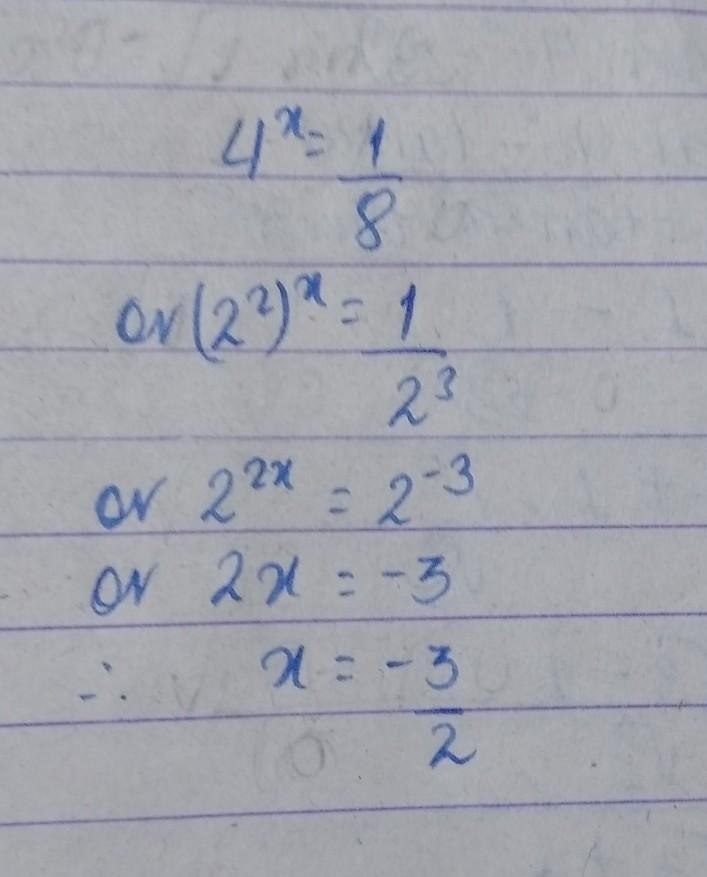 4^x = 1/8
or (2^2)^x = 1/2^3
or 2^2x = 2^-3
or 2x = -3
∴ x = -3/2